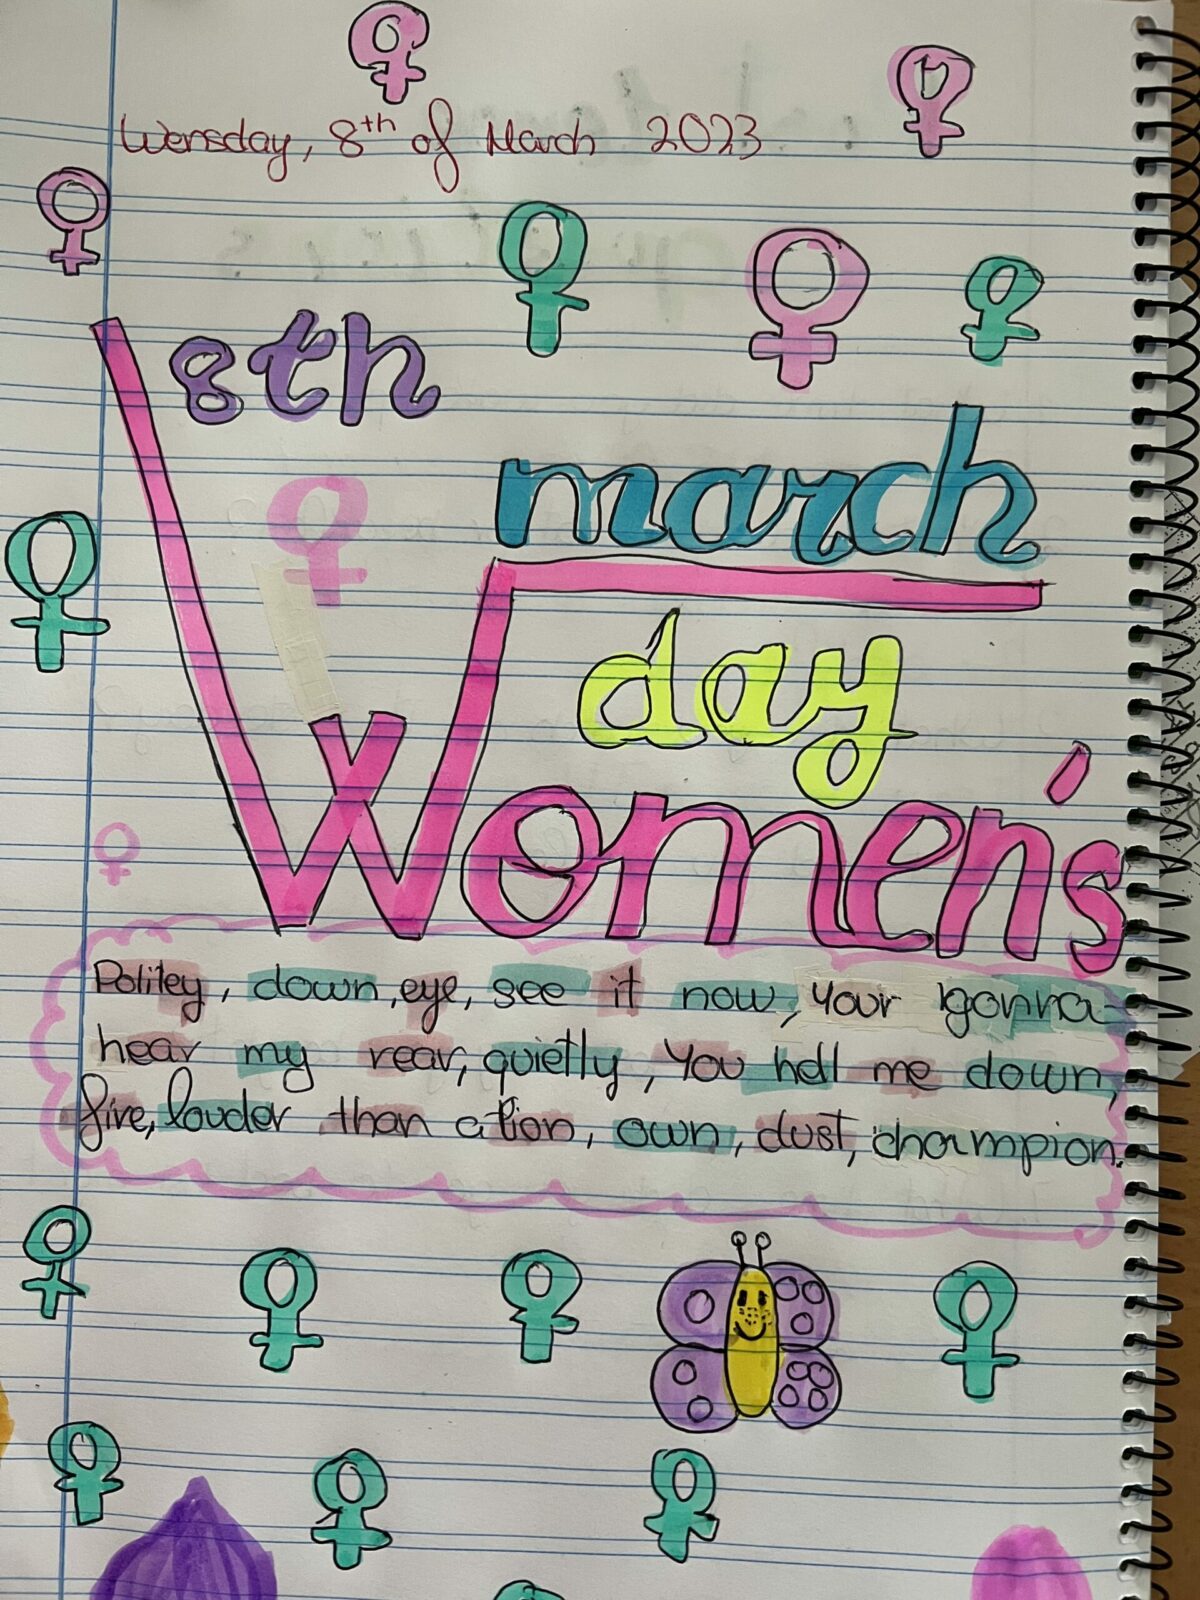 Wensday, 8th of March 2023
8th
march
day
Women's
Politey, down, eye, see it now, your gonna
hear my rear, quietly, you hell me down,
fire, louder than a lion, own, dust, champion.